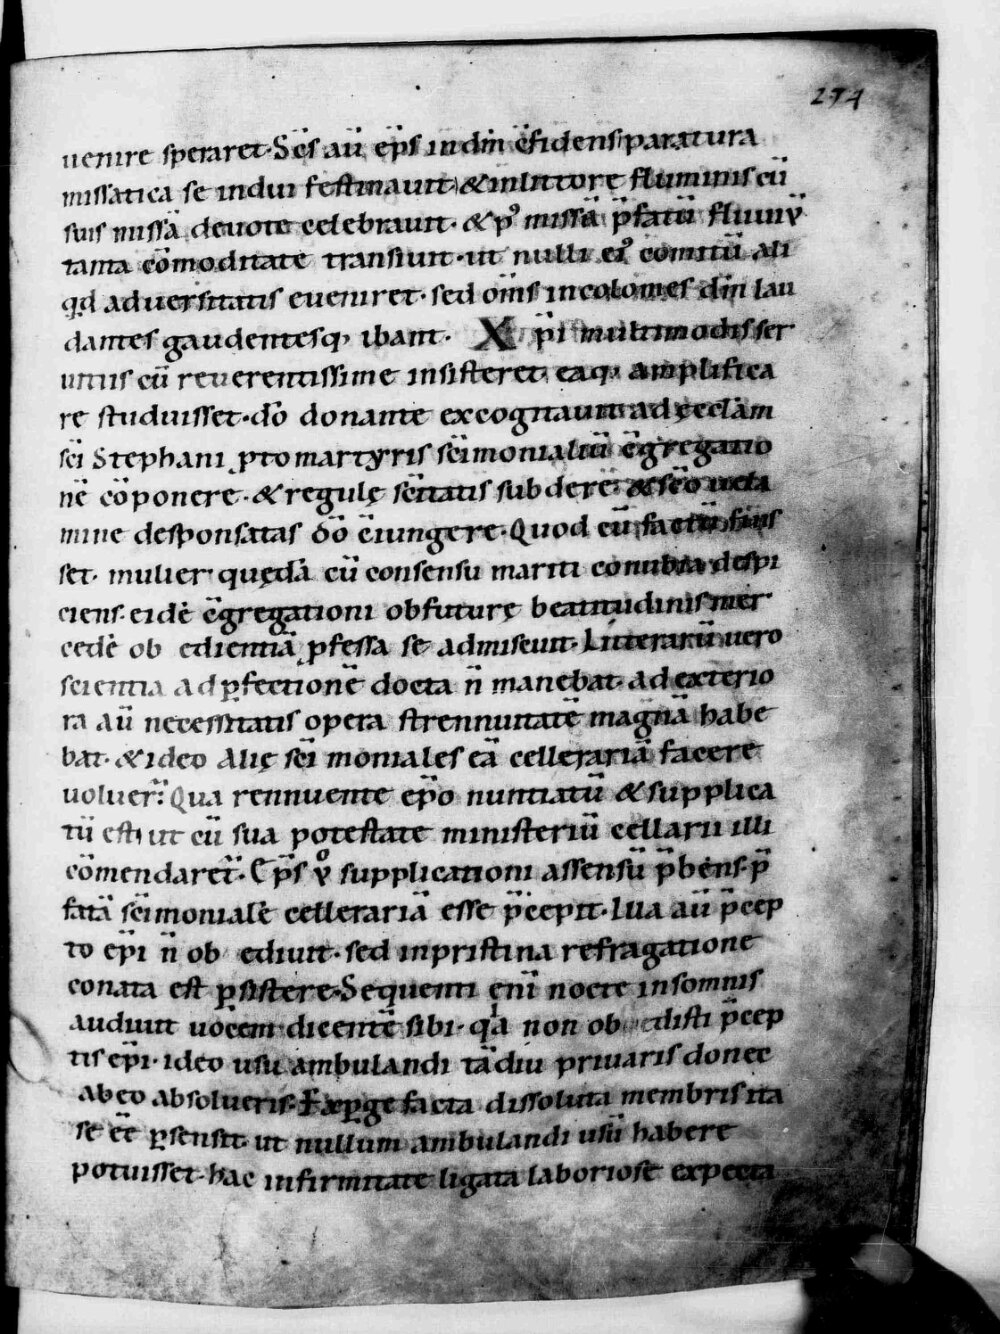 274
uenire speraret. S̄cs aū ep̄s in dn̄i c̄fidens paratura
missatica se indui festinauit. & in littore fluminis cū
suis missā deuote celebrauit. & pꝰ missā p̄fatū fluuiū
tanta cōmoditate transiuit. ut nulli eiꝰ comitū ali
qd aduersitatis eueniret. sed om̄s incolomes dn̄m lau
dantes gaudentesq; ibant. Xp̄i multimodis ser
uitiis cū reuerentissime insisteret eaq; amplifica
re studuisset. dō donante excogitauit ad ęcclām
sc̄i Stephani ꝓtomartyris sc̄imonialiū c̄gregatio
nē cōponere. & regulę sc̄itatis subdere. & sc̄o uela
mine desponsatas dō c̄iungere. Quod cū factū fuis
set. mulier quędā cū consensu mariti conubia despi
ciens. eidē c̄gregationi ob futurę beatitudinis mer
cedē ob edientiā ꝓfessa se admiscuit. Litterarū uero
scientia ad ꝑfectionē docta n̄ manebat. ad exterio
ra aū necessitatis opera strennuitatē magnā habe
bat. & ideo alię sc̄i moniales eā cellerariā facere
uoluer̄. Qua rennuente ep̄o nuntiatū & supplica
tū est. ut cū sua potestate ministeriū cellarii illi
cōmendaret. Ep̄s v̊ supplicationi assensū p̄bens. p̄
fatā sc̄imonialē cellerariā esse p̄cepit. Illa aū p̄cep
to ep̄i n̄ ob ediuit. sed in pristina refragatione
conata est ꝑsistere. Sequenti eni nocte in somnis
audiuit uocem dicentē sibi. qa non ob edisti p̄cep
tis ep̄i. ideo usu ambulandi tādiu priuaris donec
ab eo absolueris. Exꝑge facta dissoluta membris ita
se eē ꝑsensit. ut nullum ambulandi usū habere
potuisset. hac infirmitate ligata laboriose expecta